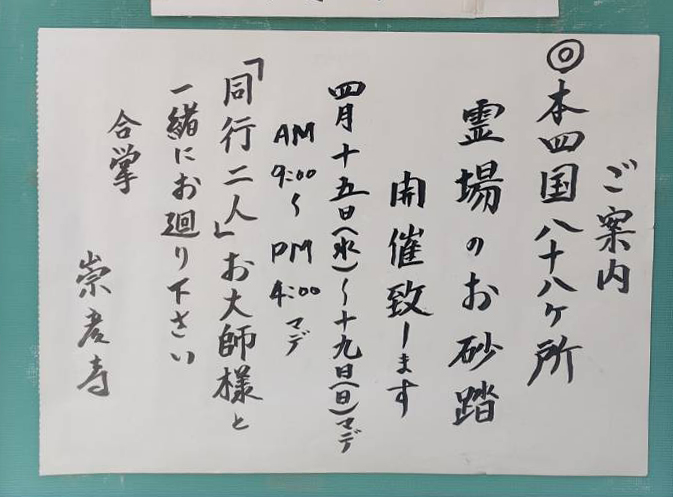 ご案内
◎本四国八十八ヶ所
霊場のお砂踏
開催致します
四月十五日(水)～十九日(日)マデ
AM 9:00～PM 4:00マデ
「同行二人」お大師様と
一緒にお廻り下さい
合掌
崇彦寺